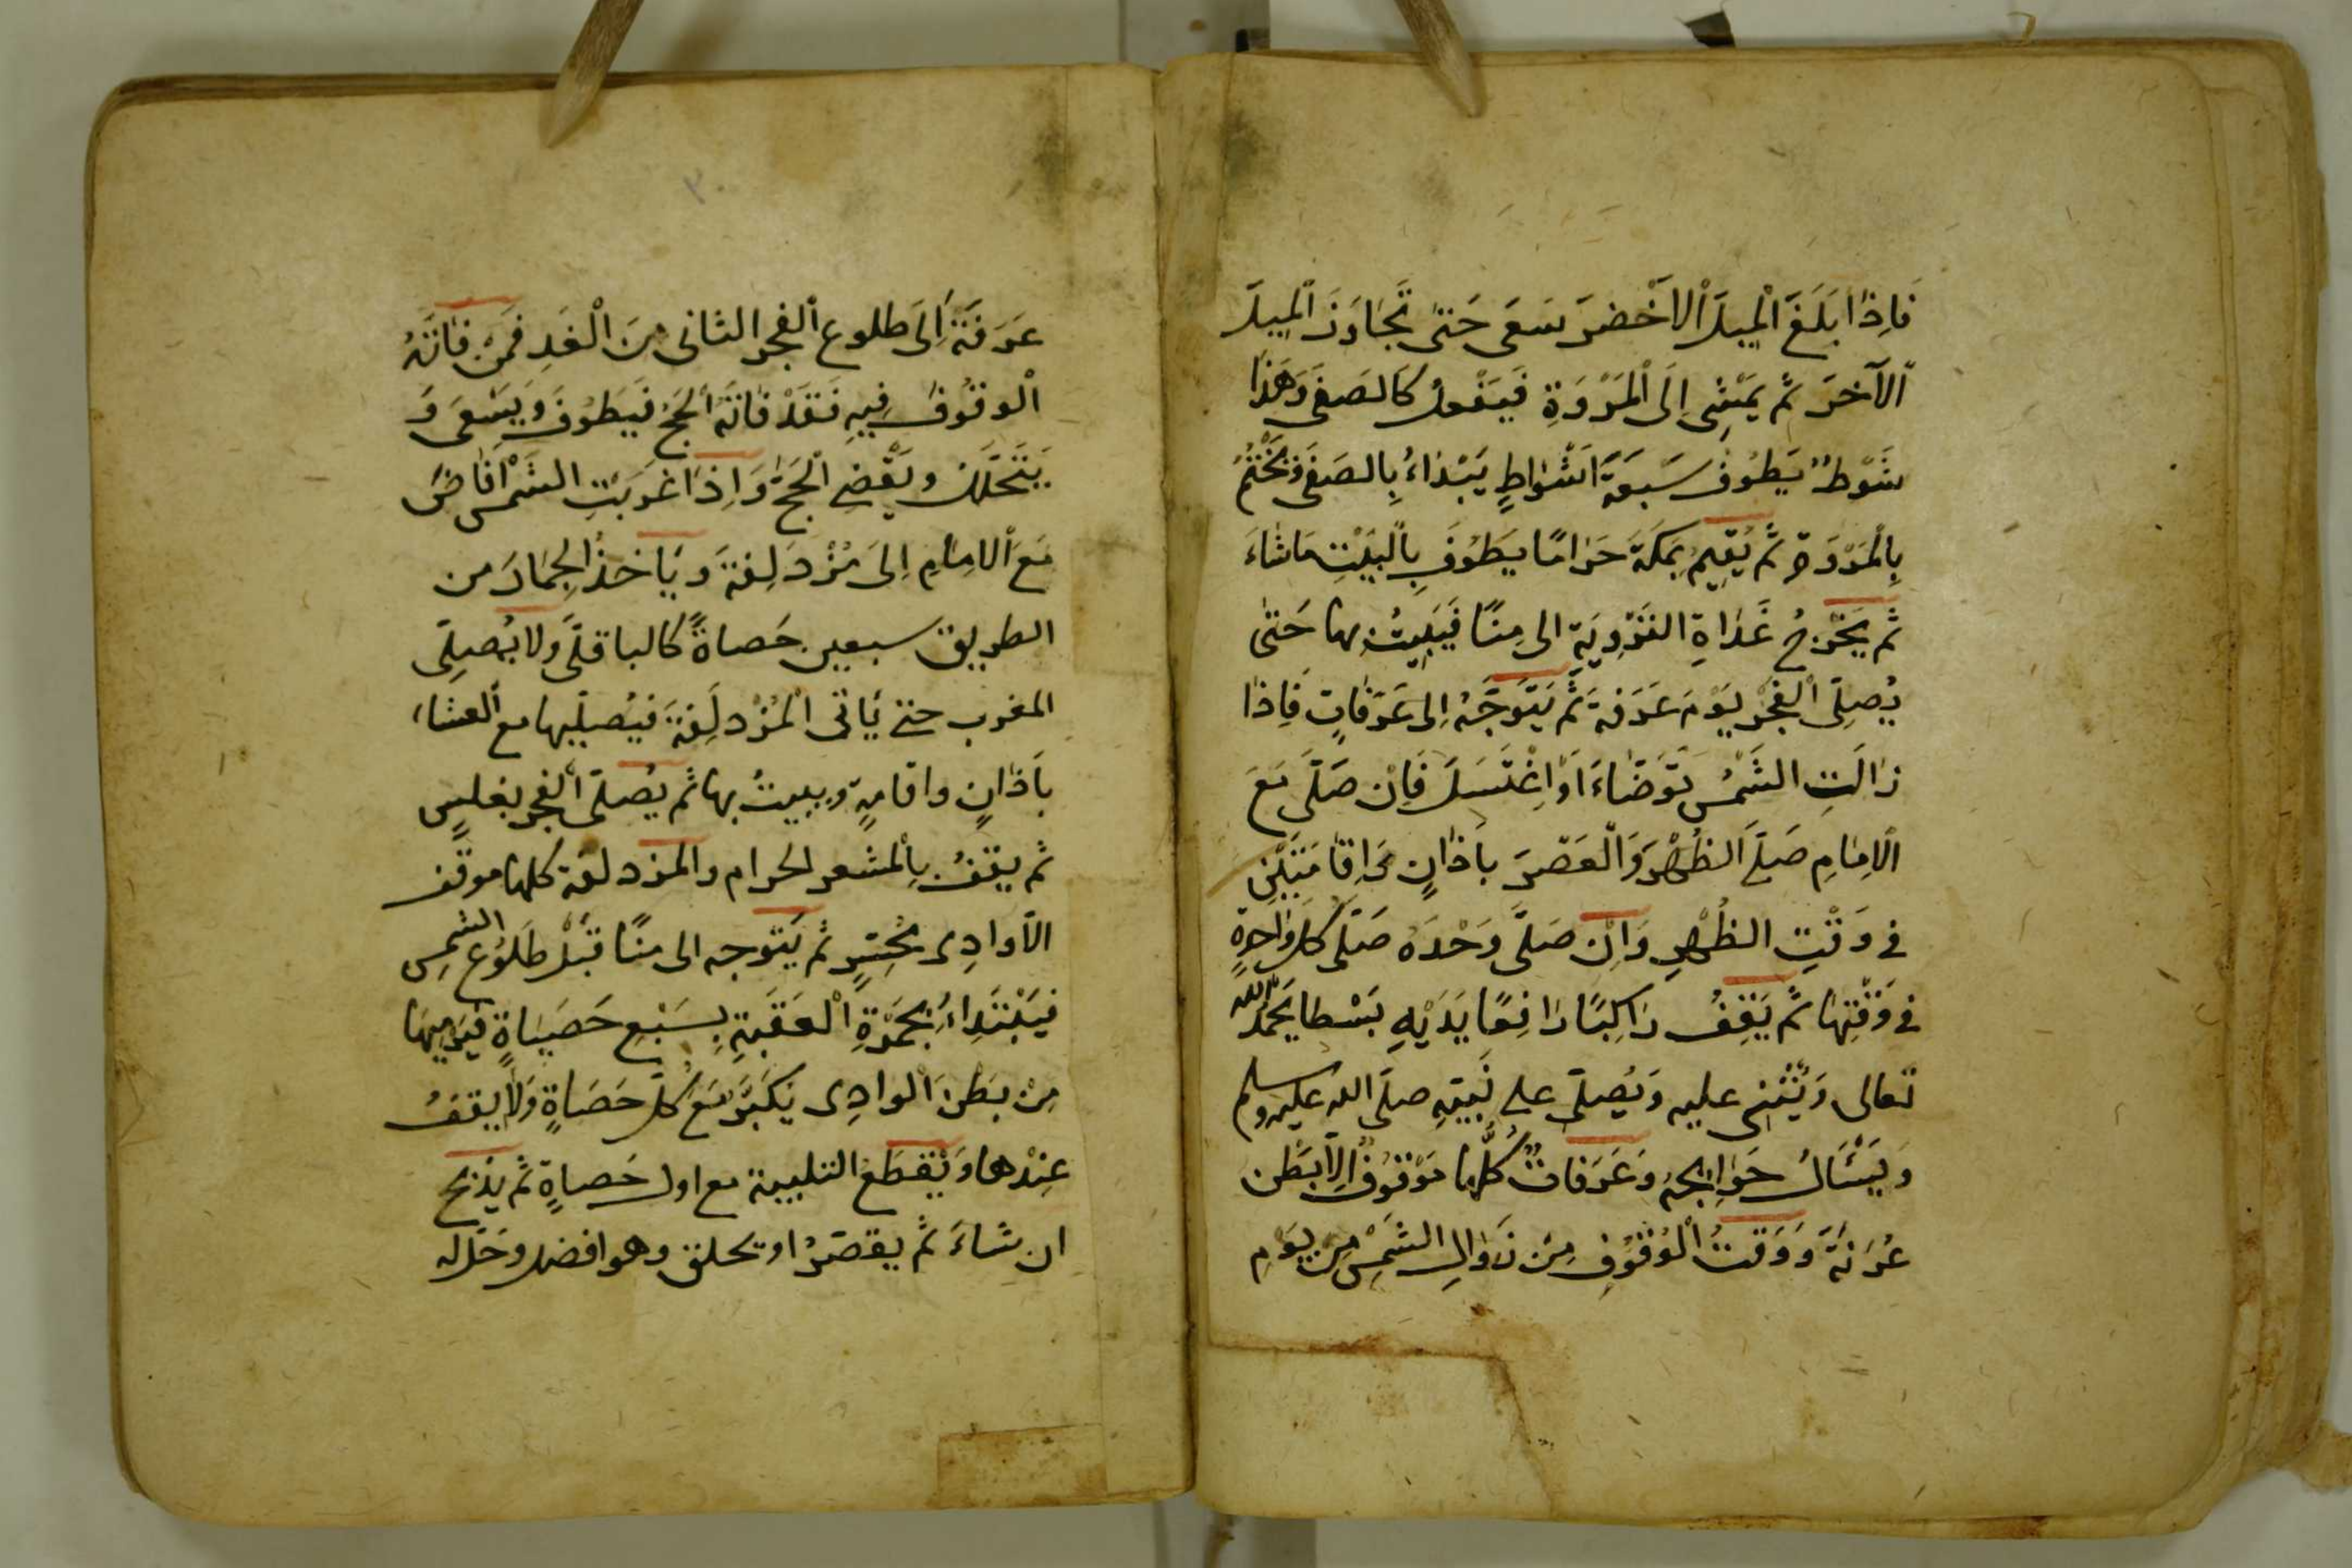 فَاِذَا بَلَغَ الْمِيلَ الْاَخْضَرَ سَعَى حَتىٰ تَجَاوَزَ الْمِيلَ
الْآخَرَ ثُمَّ يَمْشِى اِلَى الْمَرْوَةِ فَيَفْعَلُ كَالصَفَى وَهَذَا
شَوْطٌ يَطُوفُ سَبعَةَ اَشْوَاطٍ يَبْدَاءُ بِالصَفَى وَيَخْتِمُ
بِالْمَرْوَةِ ثُمَّ يُقِيمُ بِمَكَةَ حَرَامًا يَطُوفُ بِالْبَيْتِ مَا شَاءَ
ثُم يَخْرُجُ غَدَاةِ التَرْوِيَةِ الى مِنًا فَيَبِيتُ بها حَتىٰ
يُصِلَى الْفَجْر يَوْمَ عَرَفَةَ ثُمَّ يَتَوَجَّهُ اِلى عَرَفَاتٍ فَاِذَا
زَالَتِ الشَمْسُ تَوَضَاءَ اَوْ اِغْتَسَلَ فَاِنْ صَلَّى مَعَ
الْاِمَامِ صَلَّى الظُهْرَ وَالْعَصْرَ بِاَذَانٍ وَاِقَامَتَيْنِ
فى وَقْتِ الظُهْرِ وَاِنْ صَلَّى وَحْدَهُ صَلّى كل وَاحِدةٍ
فى وَقْتِهَا ثُمَّ يَقِفُ رَاكِبًا رَافِعًا يَدَيْهِ بَسْطا يَحْمَدُ اللّٰه
تعالى وَيُثْنِى عليه وَيُصِلّى على نَبِيّهِ صلَى الله عليه وسلم
وَيَسْئَالُ حَوَايجَهُ وَعَرَفَاتٌ كُلُّهَا مَوْقُوفٌ اِلاَّ بَطْن
عُرَنَةَ وَوَقتُ الْوُقُوفِ مِنْ زَوَالِ الشَمْسِ مِن يَوْمِ
عَرَفَةَ اِلَى طلوع الفجر الثانى مِنَ الْغَدِ فَمَنْ فَاتَهُ
الْوقُوفُ فِيهِ فَقَدْ فَاتَهُ الْحَجُ فَيَطُوفُ وَيَسْعَى وَ
يَتَحَلَّلُ وَيَقْضِى الْحَجَ وَاِذَا غَرَبَتِ الشَمْسُ اَفَاضَ
مَعَ الْاِمَامِ اِلَى مُزْدَلِفَةَ وَيَاخذُ الْجِمَارَ من
الطريق سبعين حَصاةً كالباقلّى وَلا يُصلِّى
المغرب حتى يَاتى الْمُزْدلِفَةَ فَيُصلّيها مع العشاء
بِاَذَانٍ واقامةٍ ويبيتُ بها ثم يُصلّى الفجر بغلسٍ
ثم يقفُ بِالْمشعر الحرام والمزدلفة كلها موقف
الاّ وادِى مُحَسِّرٍ ثم يَتوجه الى منًا قَبْل طلُوُع الشمسِ
فَيَبْتَدِاءُ بِجَمْرَةِ الْعَقَبَةِ بِسَبْعِ حَصَيَاةٍ يَرمِيهَا
مِنْ بَطْنِ الْوَادِى يَكَبّرُ مَع كلّ حَصَاةٍ وَلَا يقفُ
عِنْدها وَيَقطَعُ التلبية مع اول حَصاةٍ ثم يذبح
ان شاءَ ثم يقصرُ او يحلق وهو افضل وحَلَّ له